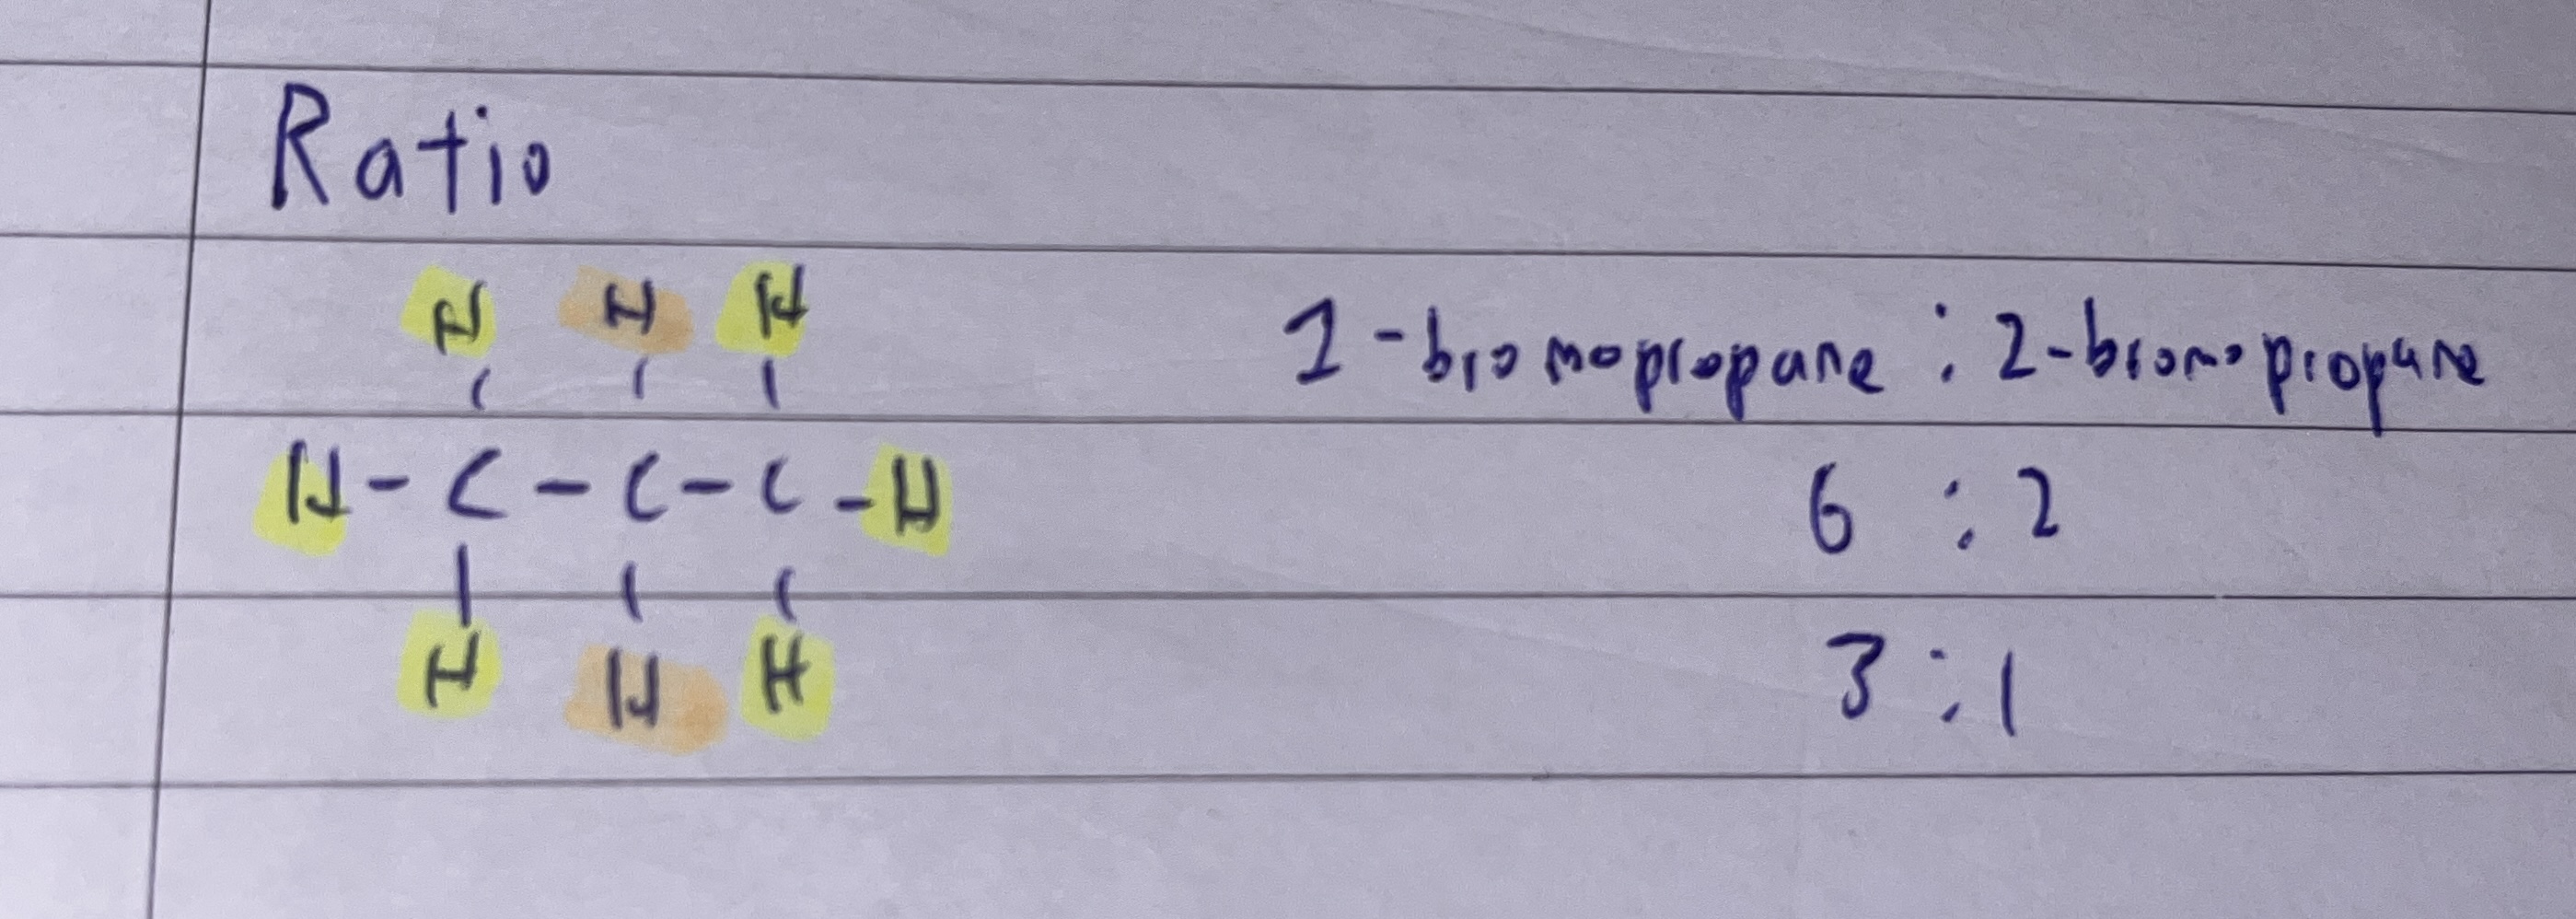 Ratio
H H H
1-bromopropane : 2-bromopropane
H-C-C-C-H
6 : 2
H H H
3 : 1